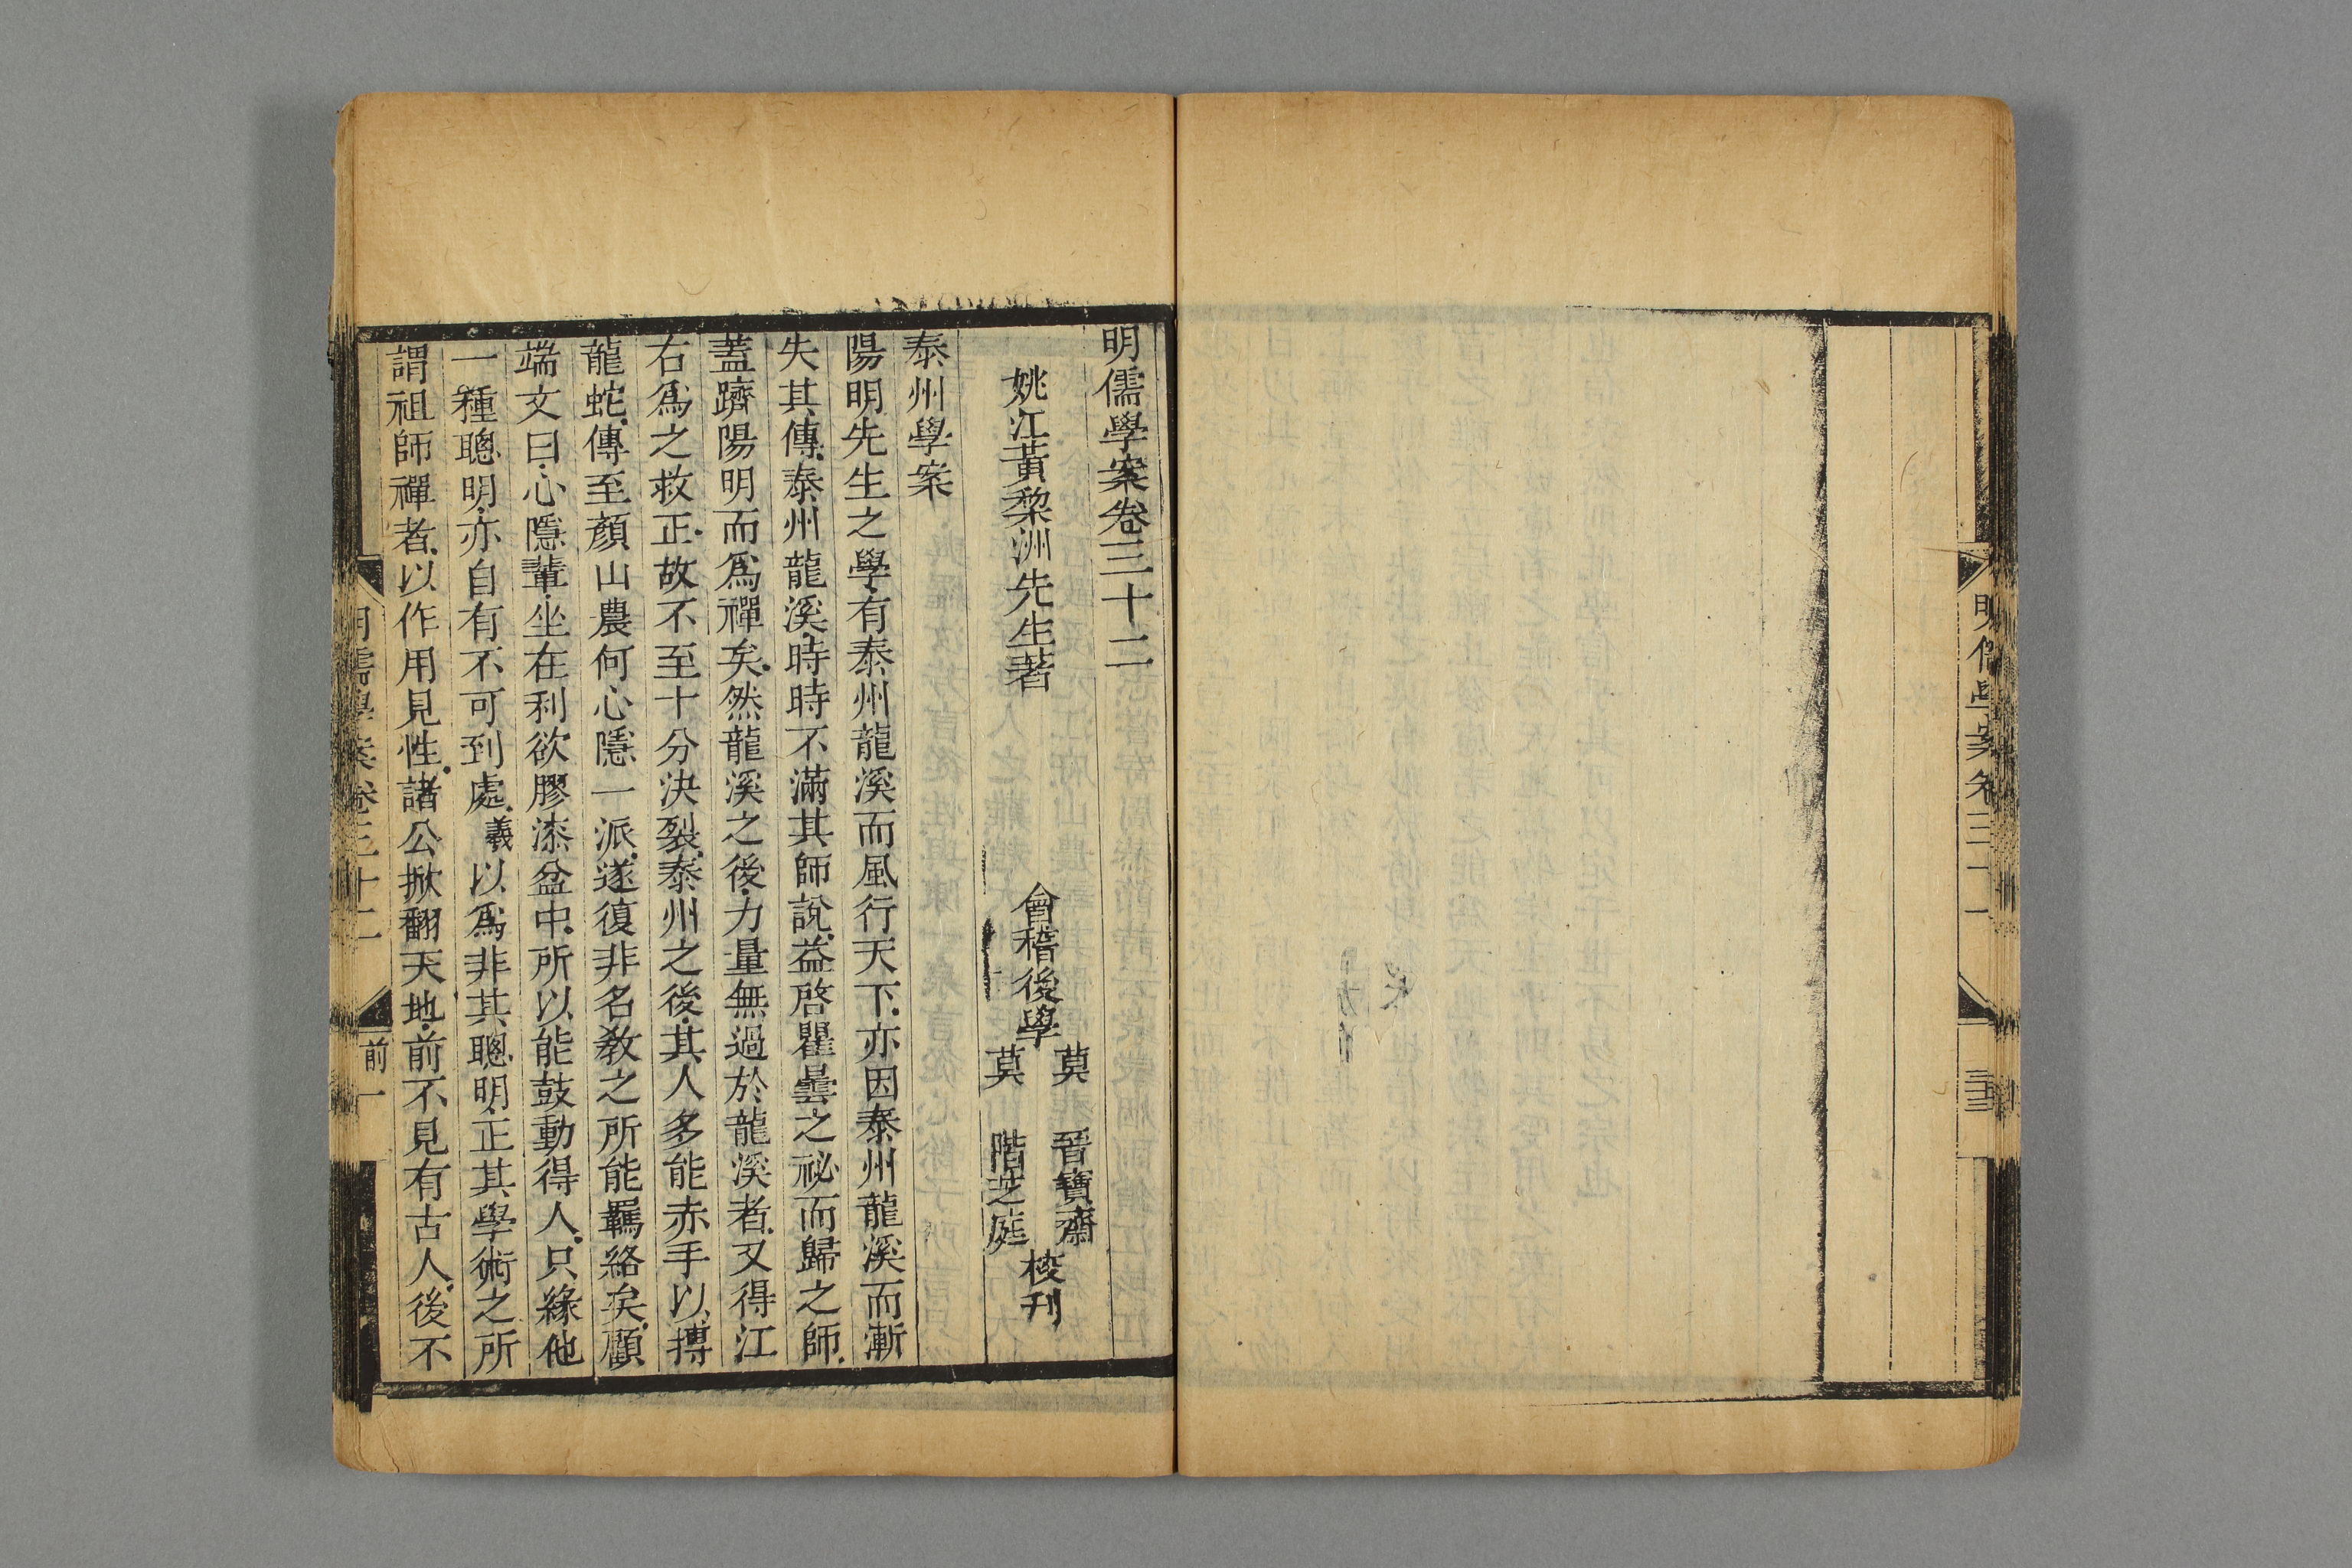 明儒學案卷三十一
明儒學案卷三十二
姚江黃黎洲先生著
會稽後學
莫晉寶齋
莫階芝庭
校刊
泰州學案
陽明先生之學.有泰州龍溪而風行天下.亦因泰州龍溪而漸
失其傳.泰州龍溪.時時不滿其師說.益啓瞿曇之祕而歸之師.
蓋躋陽明而爲禪矣.然龍溪之後.力量無過於龍溪者.又得江
右爲之救正.故不至十分決裂.泰州之後.其人多能赤手以搏
龍蛇.傳至顏山農何心隱一派.遂復非名教之所能羈絡矣.顧
端文曰.心隱輩.坐在利欲膠漆盆中.所以能鼓動得人.只緣他
一種聰明.亦自有不可到處.羲以爲非其聰明.正其學術之所
謂祖師禪者.以作用見性.諸公掀翻天地.前不見有古人.後不
明儒學案卷三十二
前一